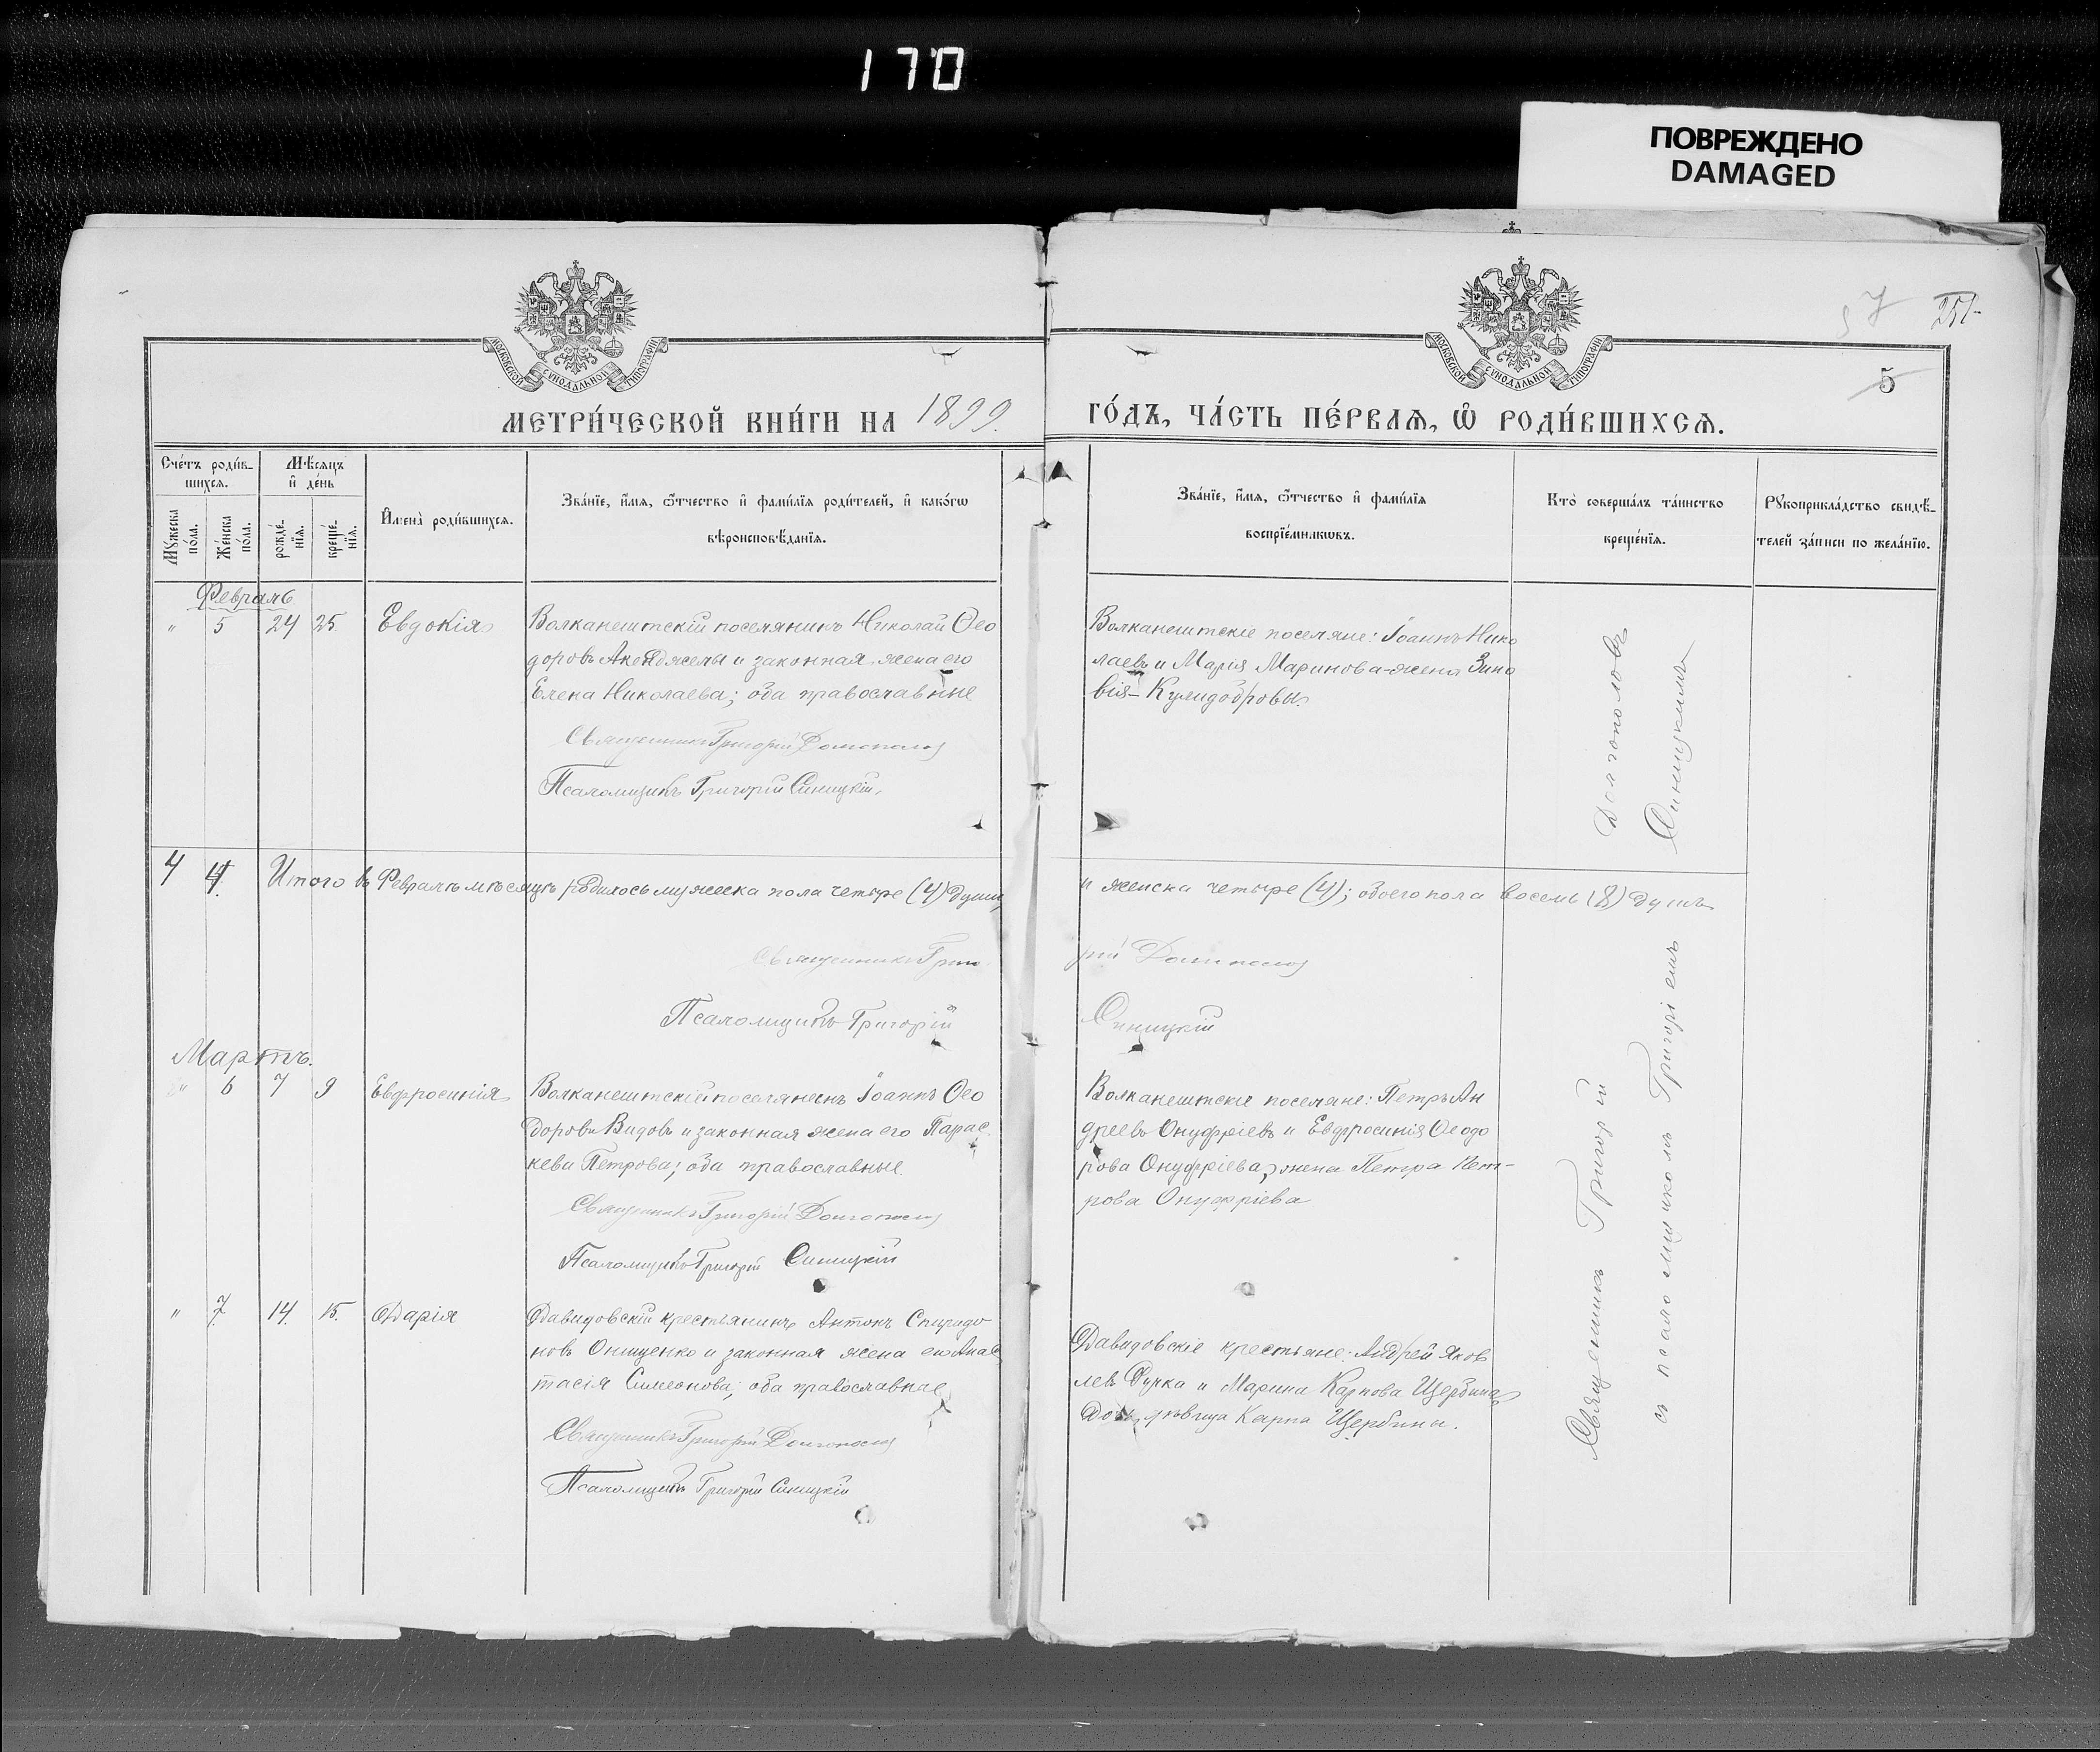 170
ПОВРЕЖДЕНО
DAMAGED
57 251
5
МОСКОВСКОЙ СѴНОДАЛЬНОЙ ТИПОГРАФІИ
МОСКОВСКОЙ СѴНОДАЛЬНОЙ ТИПОГРАФІИ
МЕТРИ́ЧЕСКОЙ КНИ́ГИ НА 1899. ГО́ДЪ, ЧА́СТЬ ПЕ́РВАѦ, Ѡ҆ РОДИ́ВШИХСѦ.
Сче́тъ роди́в-
шихсѧ.
Мѣ́сѧцъ
и҆ де́нь
Мꙋ́жеска
по́ла.
Же́нска
по́ла.
рожде́-
нїѧ.
креще́-
нїѧ.
И҆мена̀ роди́вшихсѧ.
Зва́нїе, и҆́мѧ, ѻ҆́тчество и҆ фами́лїѧ роди́телей, и҆ како́гѡ
вѣроисповѣ́данїѧ.
Зва́нїе, и҆́мѧ, ѻ҆́тчество и҆ фами́лїѧ
воспрїе́мникѡвъ.
Кто̀ соверша́лъ та́инство
креще́нїѧ.
Рꙋкоприкла́дство свидѣ́-
телей за́писи по жела́нїю.
Февраль
" 5 24 25 Евдокія
Волканештскій поселянинъ Николай Ѳео
доровъ и законная жена его
Елена Николаева; оба православные
Священникъ Григорій Долгополов
Псаломщикъ Григорій Синицкій,
Волканештскіе поселяне: Іоаннъ Нико
лаевъ и Марія Маринова-жена Зино
вія- Кулидобровы
Долгополовъ
Синицкимъ
4 4. Итого въ Февралѣ мѣсяцѣ родилось мужеска пола четыре (4) души, и женска четыре (4); обоего пола восемь (8) душъ
Священникъ Григо рій Долгополов
Псаломщикъ Григорій Синицкій
Мартъ.
" 6 7 9 Евфросинія
Волканештскій поселянинъ Іоаннъ Ѳео
доровъ Видовъ и законная жена его Парас
кева Петрова; оба православные
Священникъ Григорій Долгополов
Псаломщикъ Григорій Синицкій
Волканештскіе поселяне: Петръ Ан
дреевъ Онуфріевъ и Евфросинія Ѳеодо
рова Онуфріева, жена Петра Пет-
рова Онуфріева
" 7. 14. 15. Дарія
Давидовскій крестьянинъ Антонъ Спиридо
новъ Онищенко и законная жена его Анас
тасія Симеонова; оба православные
Священникъ Григорій Долгополов
Псаломщикъ Григорій Синицкій
Давидовскіе крестьяне: Андрей Яков
левъ Дучка и Марина Карпова Щербина
дѣвица Карпа Щербины.
Священникъ Григорій
съ псаломщикомъ Григоріемъ